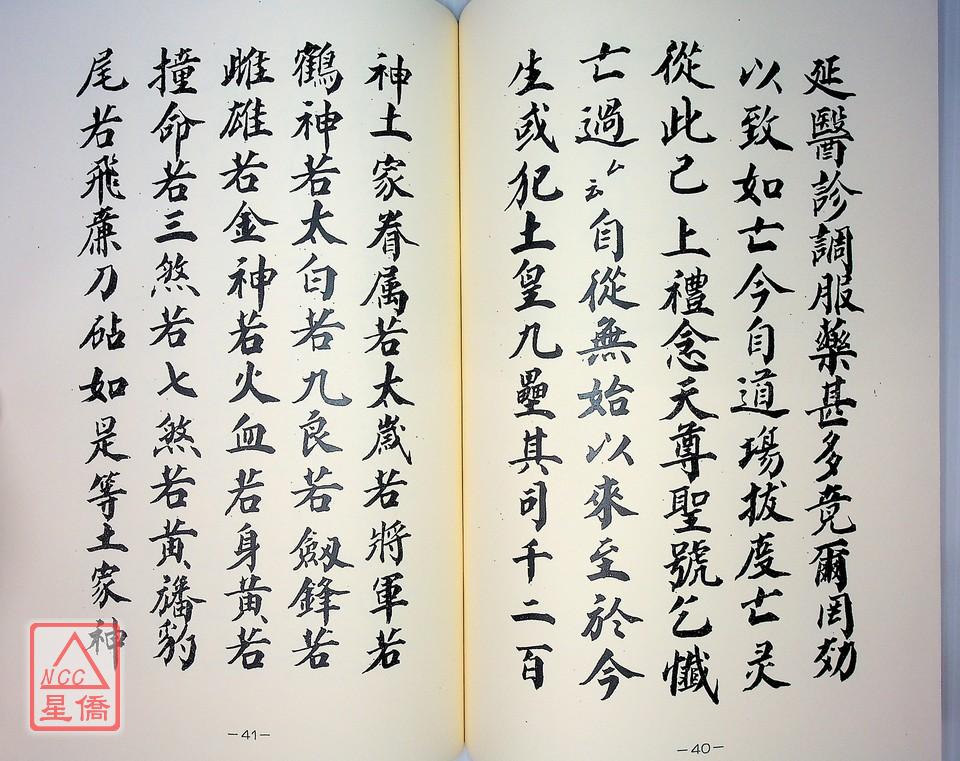 延醫診調服藥甚多竟爾罔効
以致如亡今自道塲拔度亡灵
從此已上禮念天尊聖號乞懴
亡過厶云自從無始以來至於今
生或犯土皇九壘其司千二百
-40-
神土家眷属若太歲若將軍若
鶴神若太白若九良若劔鋒若
雌雄若金神若火血若身黃若
撞命若三煞若七煞若黃旛豹
尾若飛亷刀砧如是等土家神
-41-
NCC
星僑